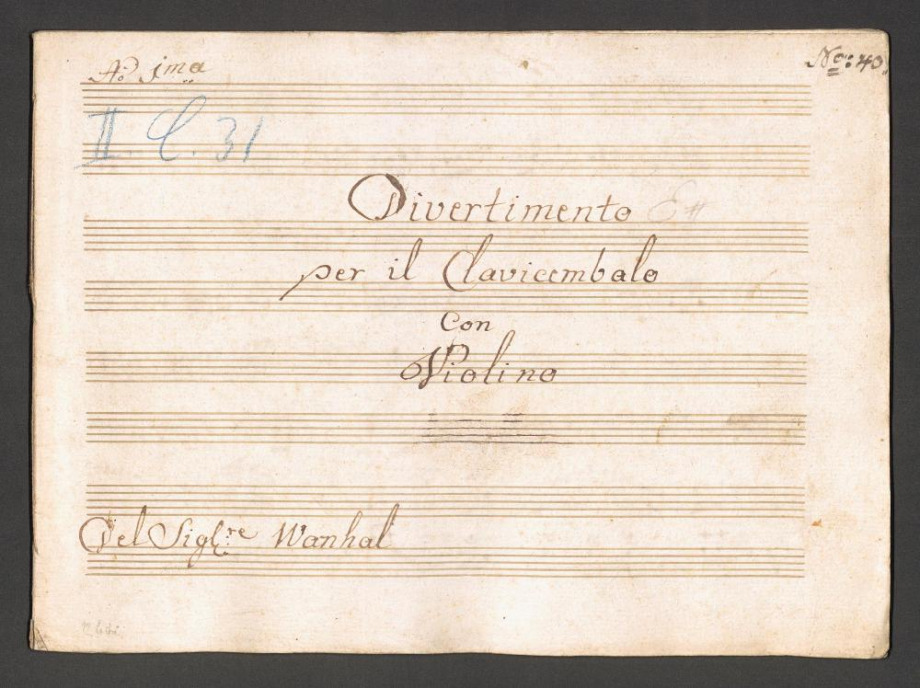 Aº 1ma
Nº: 40.
II. C. 31
Divertimento E#
per il Clavicembalo
Con
Violino
Del Sigl:re Wanhal